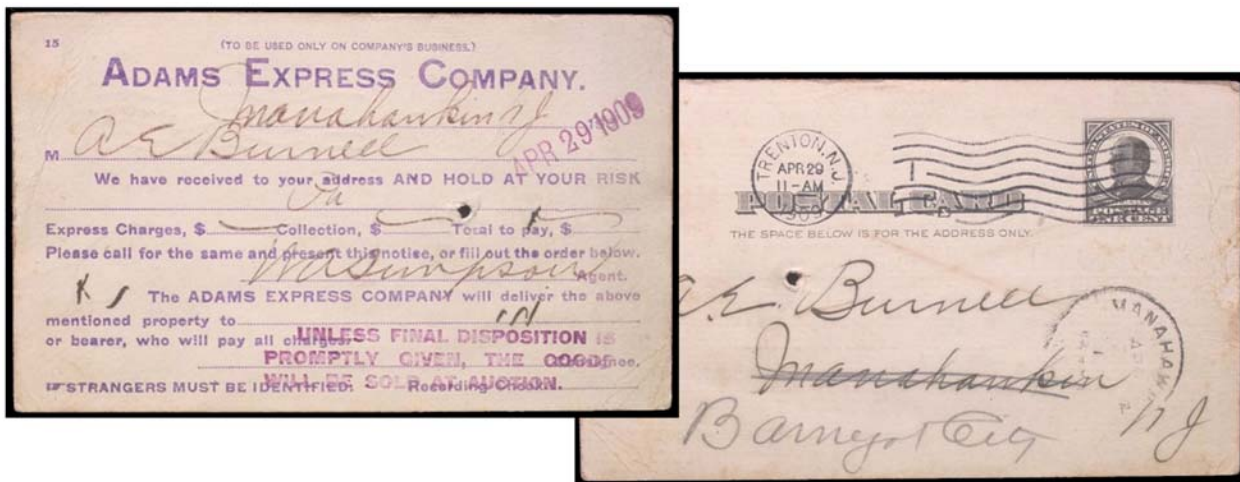 15
(TO BE USED ONLY ON COMPANY'S BUSINESS.)
ADAMS EXPRESS COMPANY.
Manahawkin NJ
APR 29 1909
M A E Burnell
We have received to your address AND HOLD AT YOUR RISK
Express Charges, $ Collection, $ Total to pay, $
Please call for the same and present this notise, or fill out the order below.
Wm Simpson Agent.
The ADAMS EXPRESS COMPANY will deliver the above
mentioned property to
or bearer, who will pay all charges.
UNLESS FINAL DISPOSITION IS
PROMPTLY GIVEN, THE GOODS
WILL BE SOLD AT AUCTION.
☞STRANGERS MUST BE IDENTIFIED.
TRENTON, N.J.
APR 29
11-AM
1909
POSTAL CARD
THE SPACE BELOW IS FOR THE ADDRESS ONLY.
UNITED STATES OF AMERICA
POSTAGE
ONE CENT
A. E. Burnell
Manahawkin
N J
Barnegat City
MANAHAW